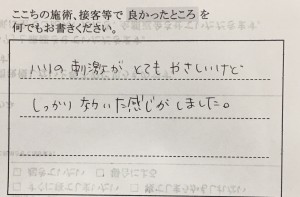 ここちの施術、接客等で 良かったところ を
何でもお書きください。
ハリの刺激が、とてもやさしいけど
しっかり なおいた感じがしました。